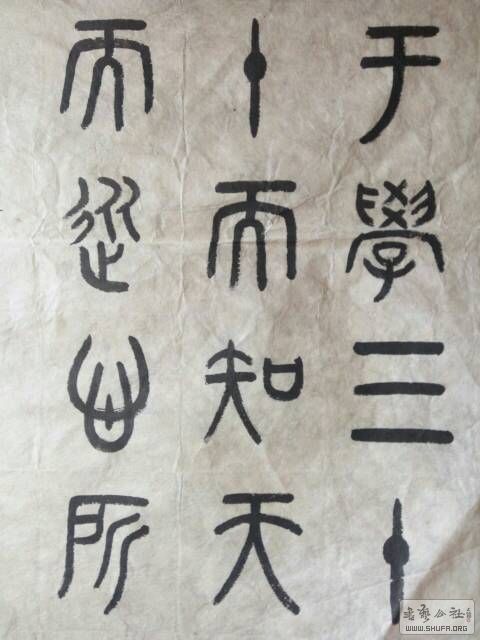 于學三十
十而知天
而從心所
書藝公社
WWW.SHUFA.ORG